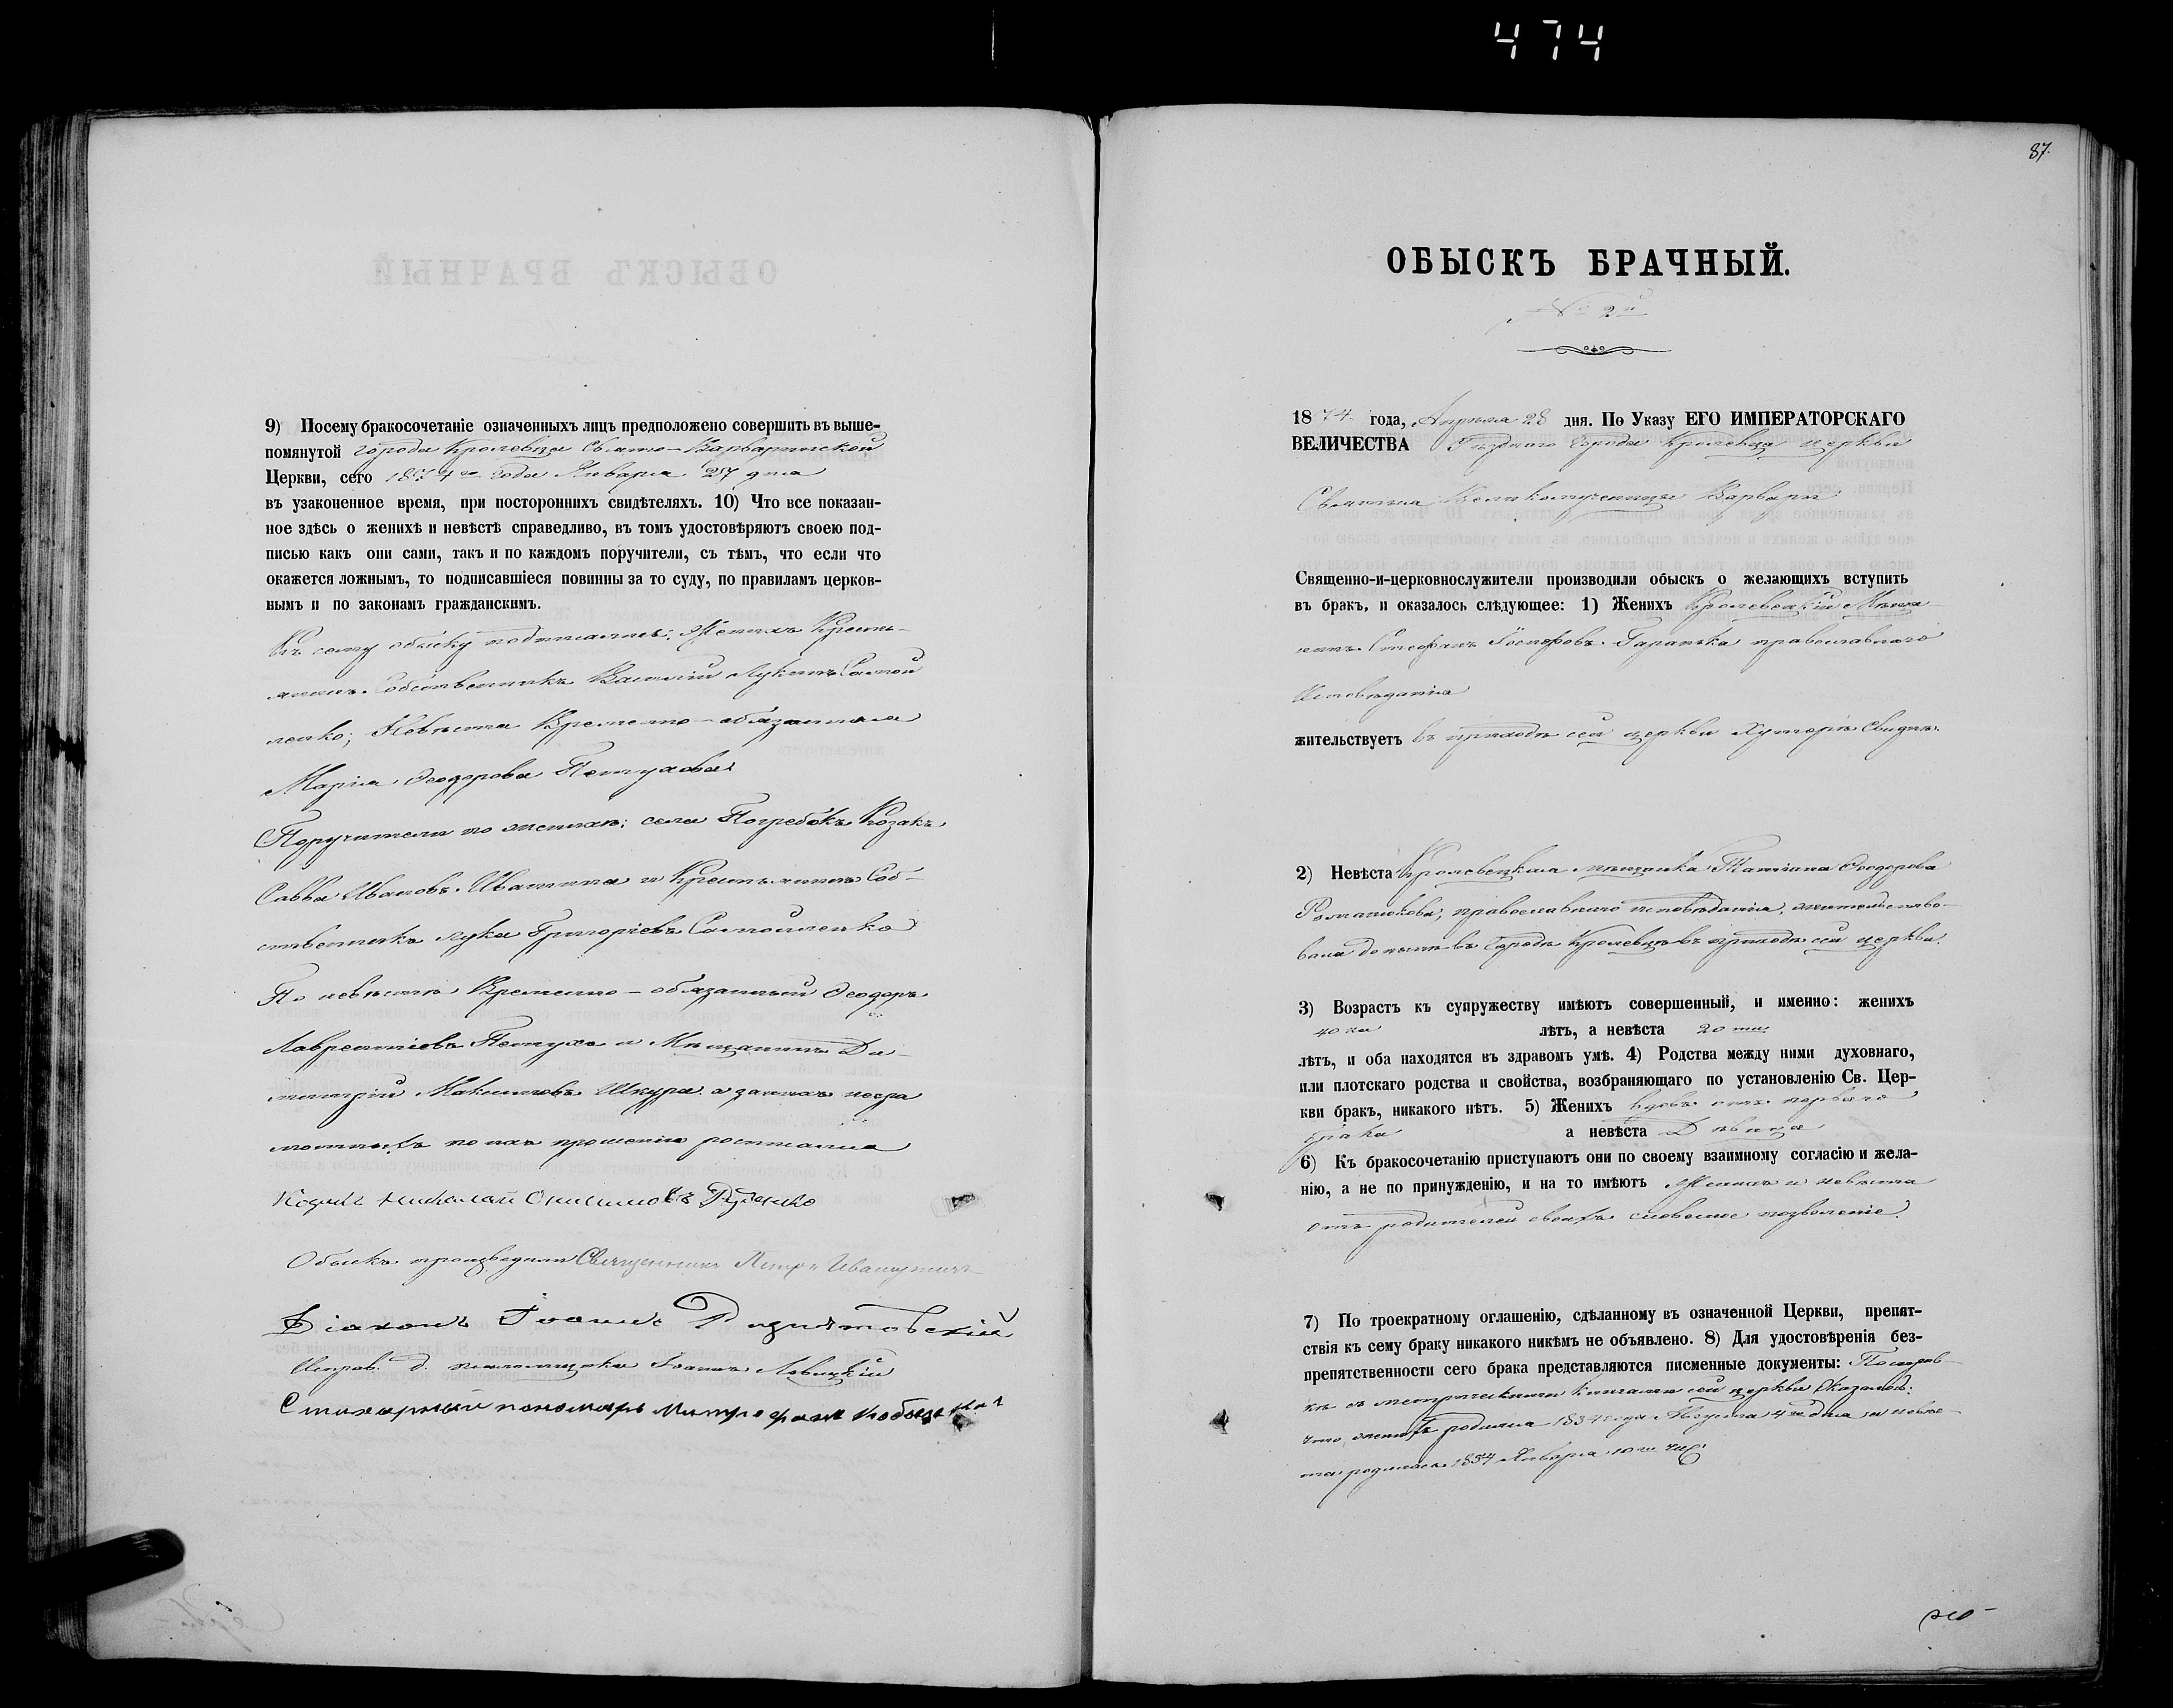 474
9) Посему бракосочетаніе означенныхъ лицъ предположено совершить въ выше-
помянутой города Кролевца Свято-Варваринской
Церкви, сего 1874го года Января 27 дня
въ узаконенное время, при постороннихъ свидѣтеляхъ. 10) Что все показан-
ное здѣсь о женихѣ и невѣстѣ справедливо, въ томъ удостовѣряютъ своею под-
писью какъ они сами, такъ и по каждомъ поручители, съ тѣмъ, что если что
окажется ложнымъ, то подписавшіеся повинны за то суду, по правиламъ церков-
нымъ и по законамъ гражданскимъ.
Къ сему обыску подписались: Женихъ Кресть-
янинъ Собственникъ Василій Лукинъ Самой
ленко; Невѣста Временно-обязанная
Марія Ѳеодорова Петухова
Поручители по женихѣ: села Погребокъ Козакъ
Савва Ивановъ Ивашина и Крестьянинъ Соб-
ственникъ Лука Григоріевъ Самойленко
По невѣстѣ Временно-обязанный Ѳеодоръ
Лаврентіевъ Петухъ и Мѣщанинъ Ди-
митрій Максимовъ Шкура а за нихъ негра
мотныхъ по ихъ прошенію росписался
Козакъ Николай Онисимовъ Руденко
Обыскъ производили Священникъ Петръ
Діаконъ Іоаннъ
Исправ. д. псаломщика Іоаннъ Левицкій
Стихарный пономарь Митрофанъ
87.
ОБЫСКЪ БРАЧНЫЙ.
№ 2й
1874 года, Апрѣля 28 дня. По Указу ЕГО ИМПЕРАТОРСКАГО
ВЕЛИЧЕСТВА Уѣзднаго города Кролевца церкви
Святыя Великомученицы Варвары
Священно-и-церковнослужители производили обыскъ о желающихъ вступить
въ бракъ, и оказалось слѣдующее: 1) Женихъ Кролевецкій Мѣща-
нинъ Стефанъ Іосифовъ Гаранька православнаго
Исповѣданія
жительствуетъ въ приходѣ сей церкви Хуторѣ Свиднѣ.
2) Невѣста Кролевецкая мѣщанка Татіана Ѳеодорова
Романюкова, православнаго исповѣданія, жительство-
вала донынѣ въ городѣ Кролевцѣ въ приходѣ сей церкви.
3) Возрастъ къ супружеству имѣютъ совершенный, и именно: женихъ
40 ка лѣтъ, а невѣста 20 ти
лѣтъ, и оба находятся въ здравомъ умѣ. 4) Родства между ними духовнаго,
или плотскаго родства и свойства, возбраняющаго по установленію Св. Цер-
кви бракъ, никакого нѣтъ. 5) Женихъ вдовъ отъ перваго
брака а невѣста Дѣвица
6) Къ бракосочетанію приступаютъ они по своему взаимному согласію и жела-
нію, а не по принужденію, и на то имѣютъ Женихъ и невѣста
отъ родителей своихъ словесное позволеніе.
7) По троекратному оглашенію, сдѣланному въ означенной Церкви, препят-
ствія къ сему браку никакого никѣмъ не объявлено. 8) Для удостовѣренія без-
препятственности сего брака представляются писменные документы: По справ-
кѣ съ метрическими книгами сей церкви оказалось:
что женихъ родился 1834 года Августа 4го дня а невѣс-
та родилась 1854 Января 10го чис.